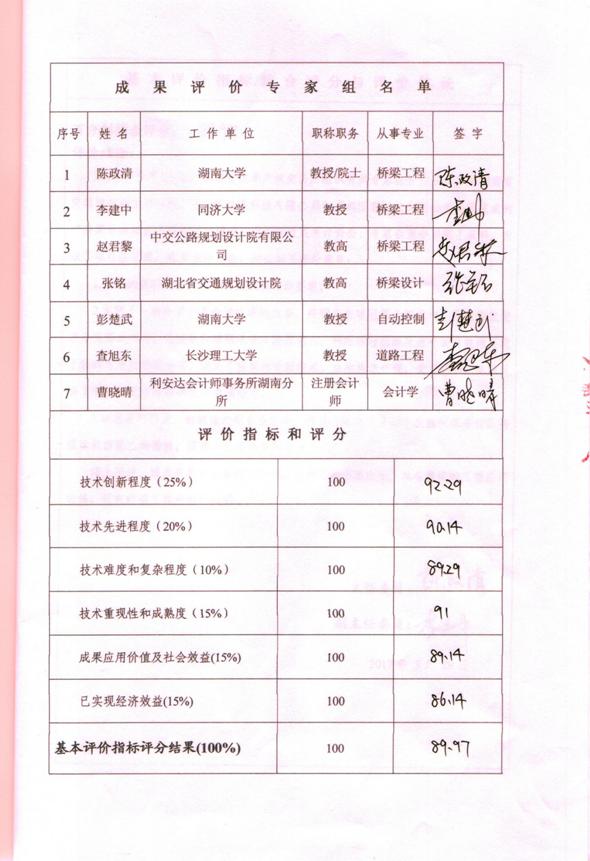 成果评价专家组名单
序号 姓名 工作单位 职称职务 从事专业 签字
1 陈政清 湖南大学 教授/院士 桥梁工程 陈政清
2 李建中 同济大学 教授 桥梁工程
3 赵君黎 中交公路规划设计院有限公
司 教高 桥梁工程 赵君黎
4 张铭 湖北省交通规划设计院 教高 桥梁设计 张铭
5 彭楚武 湖南大学 教授 自动控制 彭楚武
6 查旭东 长沙理工大学 教授 道路工程 查旭东
7 曹晓晴 利安达会计师事务所湖南分
所 注册会计
师 会计学 曹晓晴
评价指标和评分
技术创新程度（25%） 100 92.29
技术先进程度（20%） 100 90.14
技术难度和复杂程度（10%） 100 89.29
技术重现性和成熟度（15%） 100 91
成果应用价值及社会效益(15%) 100 89.14
已实现经济效益(15%) 100 86.14
基本评价指标评分结果(100%) 100 89.97